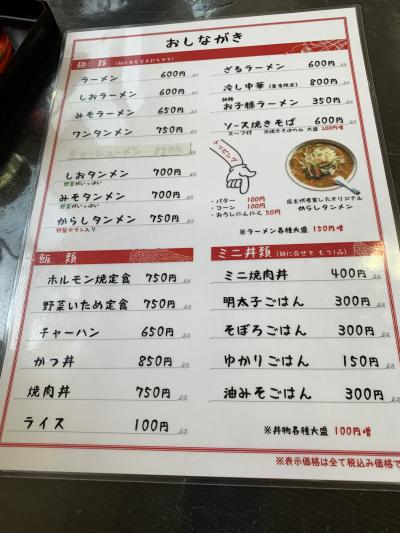 おしながき
麺類
ラーメン 600円
しおラーメン 600円
みそラーメン 650円
ワンタンメン 750円
チャーシューメン 850円
しおタンメン 700円
野菜がいっぱい
みそタンメン 700円
野菜がいっぱい
からしタンメン 750円
特製カラシ入り
ざるラーメン 600円
冷し中華(夏季限定) 800円
お子様ラーメン 350円
ソース焼きそば 600円
スープ付 ※焼きそばのみ 大盛 200円増
トッピング
・バター 100円
・コーン 100円
・おろしにんにく 50円
店主が考案したオリジナル
からしタンメン
※ラーメン各種大盛 150円増
飯類
ホルモン焼定食 750円
野菜いため定食 750円
チャーハン 650円
かつ丼 850円
焼肉丼 750円
ライス 100円
ミニ丼類(麺に合せて もう1品)
ミニ焼肉丼 400円
明太子ごはん 300円
そぼろごはん 300円
ゆかりごはん 150円
油みそごはん 300円
※丼物各種大盛 100円増
※表示価格は全て税込み価格で